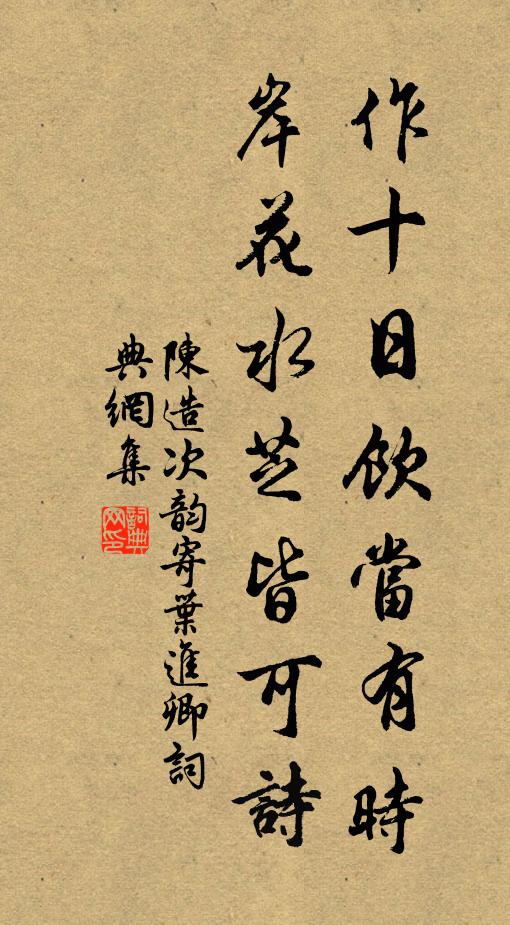 作十日飲當有時
岸花水芝皆可詩
陳造次韵寄葉進卿詞
典網集
詞典
网印